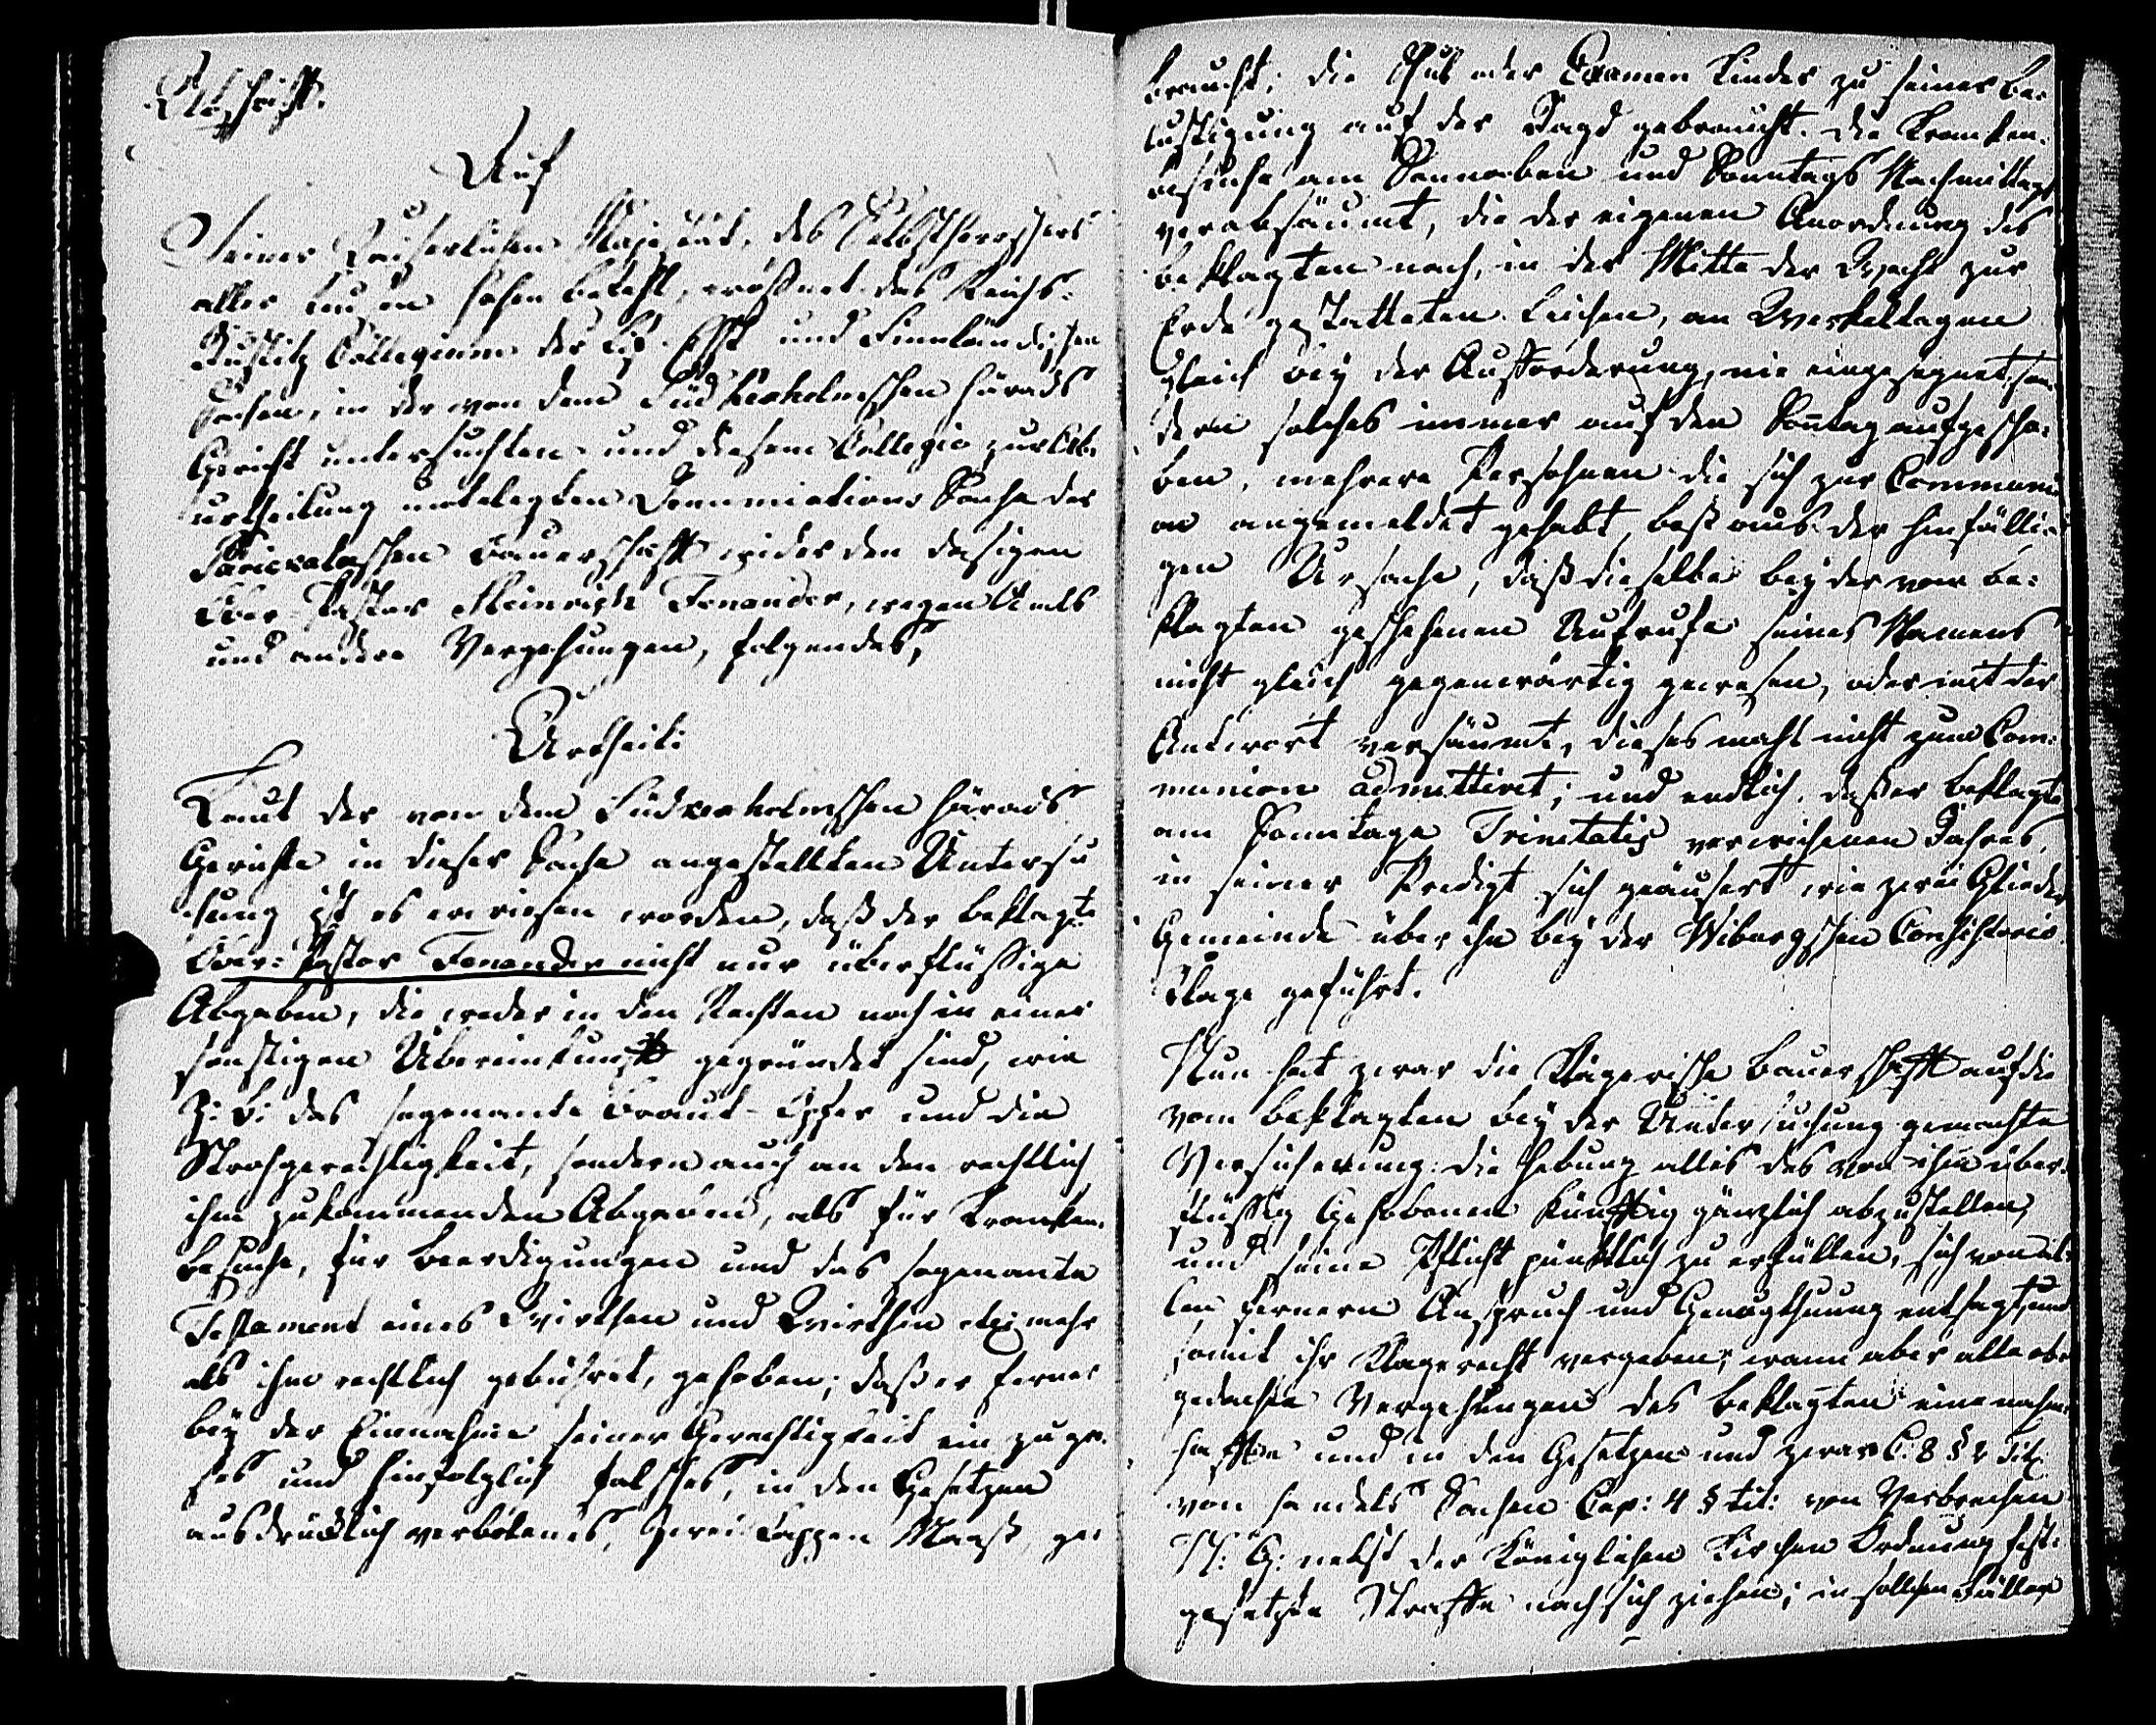 Abschrift.
Auf
Seiner Kaiserlichen Majestät, des Selbstherrschers
aller Reußen hohen Befehl, eröffnet das Reichs-
Justitz Collegium der Lief- Ehst und Finnländischen
Sachen, in der von dem Süd Kexholmschen Härads
Gericht untersuchten und diesem Collegio zur Ab-
urtheilung unterlegten Denunciations Sache der
Parickalaschen Bauerschafft wider den dasigen
Ober-Pastor Heinrich Fenander, wegen Amts
und andere Vergehungen, folgendes,
Urtheil:
Laut der von dem Südkexholmschen Härads
Gerichte in dieser Sache angestellten Untersu
chung ist es erwiesen worden, daß der Beklagte
Ober-Pastor Fenander nicht nur überflüßige
Abgaben, die weder in den Rechten noch in einer
sonstigen Übereinkunfft gegründet sind, wie
Z: B: das sogenante Braut-Opfer und die
Strohgerechtigkeit, sondern auch an den rechtlich
ihm zukommenden Abgaben, als für Kranken-
besuche, für Beerdigungen und das sogenante
Testament eines Wirthen und Wirthin etc: mehr
als ihm rechtlich gebühret, gehoben; daß er ferner
bey der Einnahme seiner Gerechtigkeit ein zu gro-
ßes und hinfolglich falsches, in den Gesetzen
ausdrücklich verbotenes, zwei Kappen Maaß, ge-
braucht; die Schul oder Examen Kinder zu seiner Be-
lustigung auf der Jagd gebraucht. die Kranken-
besuche am Sonnaben und Sonntags Nachmittags
verabsäumt, die der eigenen Anordnung des
Beklagten nach, in der Mitte der Woche zur
Erde gestatteten Leichen, an Werkeltagen
gleich bey der Aufforderung, nie eingesegnet, son
dern solches immer auf den Sontag aufgescho-
ben, mehrere Persohnen die sich zur Communi
on angemeldet gehabt, bloß aus der hinfälli-
gen Ursache, daß dieselbe bey der vom Be-
klagten geschehenen Aufrufe seines Namens
nicht gleich gegenwärtig gewesen, oder mit der
Antwort versäumt, dieses mahl nicht zum Com-
munion admittiret; und endlich, daß er Beklagte
am Sonntage Trinitatis verwichenen Jahres,
in seiner Predigt sich geäusert wie zwei Glieder
Gemeinde über ihn bey der Wiburgschen Consistorio
Klage geführt.
Nun hat zwar die Klägerische Bauerschafft auf die
vom Beklagten bey der Untersuchung gemachte
Versicherung: die Hebung alles des von ihm über-
flüssig Gehobenen künfftig gänzlich abzustellen,
und seine Pflicht pünktlich zu erfüllen, sich von al-
len fernern Anspruch und Genugthuung entsagt, und
somit ihr Klagerecht vergeben; wann aber alle ob-
gedachte Vergehungen des Beklagten eine nahm-
haffte und in den Gesetzen und zwar C: 8 § 2 Tit:
von Handels Sachen Cap: 4 § tit: von Verbrechen
N: G: nebst der Königlichen Kirchen Ordnung fest-
gesetzte Straffe nach sich ziehen; in sollchen Fällen